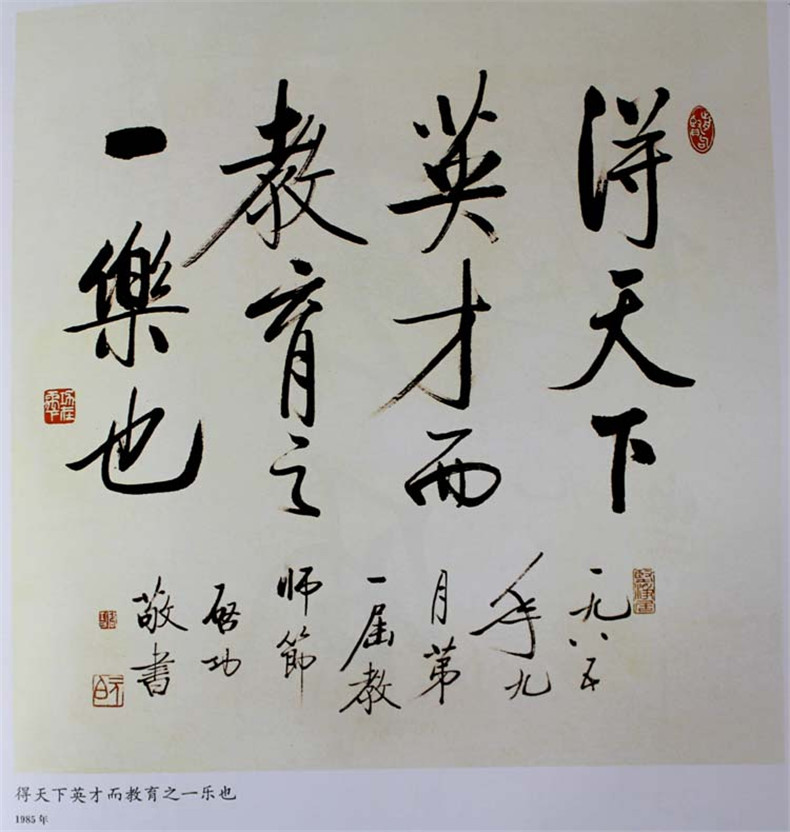 得天下
英才而
教育之
一樂也
一九八五
年九
月第
一屆教
师節
启功
敬書
得天下英才而教育之一乐也
1985年